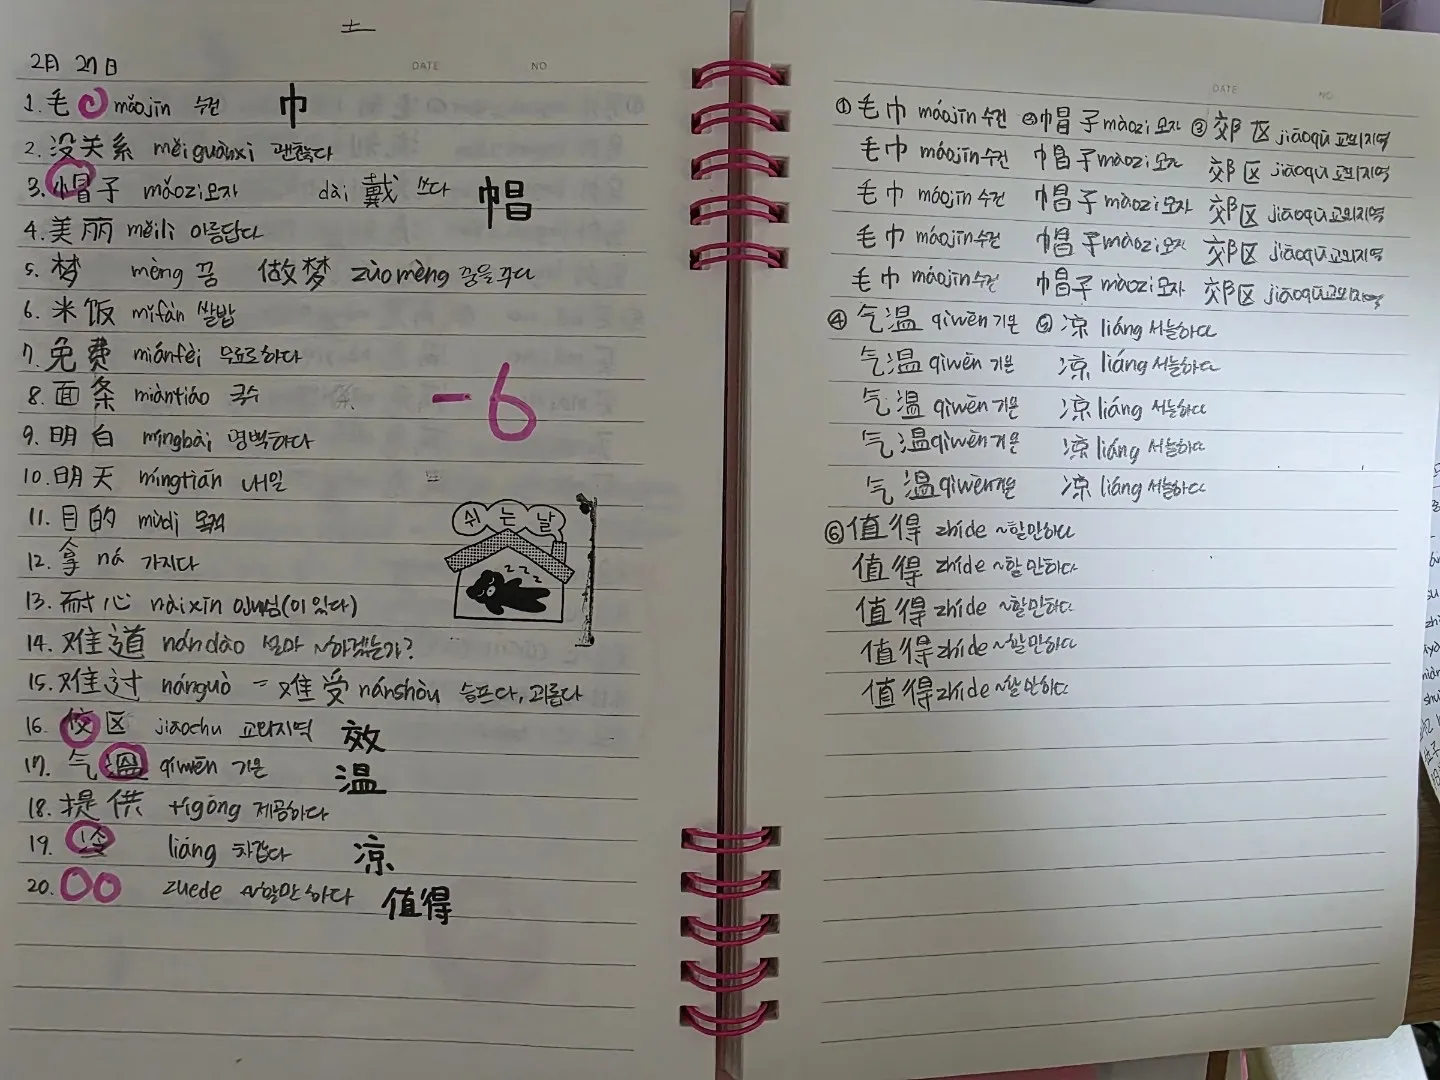 土
2月 27日
DATE NO
1. 毛 mǎojīn 수건 巾
2. 没关系 měiguānxi 괜찮다
3. 帽子 mǎozi 모자 dài 戴 쓰다 帽
4. 美丽 měilì 아름답다
5. 梦 mèng 꿈 做梦 zùo mèng 꿈을 꾸다
6. 米饭 mǐfàn 쌀밥
7. 免费 miǎnfèi 무료로하다
8. 面条 miàntiáo 국수
-6
9. 明白 míngbài 명백하다
10. 明天 míngtiān 내일
11. 目的 mùdì 목적
쉬는날
zzz
12. 拿 ná 가지다
13. 耐心 nàixīn 인내심(이 있다)
14. 难道 nándào 설마 ~하겠는가?
15. 难过 nánguò = 难受 nánshòu 슬프다, 괴롭다
16. 佼区 jiāochu 교외지역 效
17. 气温 qìwēn 기온 温
18. 提供 tígōng 제공하다
19. 冷 liáng 차갑다 凉
20. zuede ~할만하다 值得
DATE NO
① 毛巾 máojīn 수건 ② 帽子 màozi 모자 ③ 郊区 jiāoqū 교외지역
毛巾 máojīn 수건 帽子 màozi 모자 郊区 jiāoqū 교외지역
毛巾 máojīn 수건 帽子 màozi 모자 郊区 jiāoqū 교외지역
毛巾 máojīn 수건 帽子 màozi 모자 郊区 jiāoqū 교외지역
毛巾 máojīn 수건 帽子 màozi 모자 郊区 jiāoqū 교외지역
④ 气温 qìwēn 기온 ⑤ 凉 liáng 서늘하다
气温 qìwēn 기온 凉 liáng 서늘하다
气温 qìwēn 기온 凉 liáng 서늘하다
气温 qìwēn 기온 凉 liáng 서늘하다
气温 qìwēn 기온 凉 liáng 서늘하다
⑥ 值得 zhíde ~할만하다
值得 zhíde ~할만하다
值得 zhíde ~할만하다
值得 zhíde ~할만하다
值得 zhíde ~할만하다